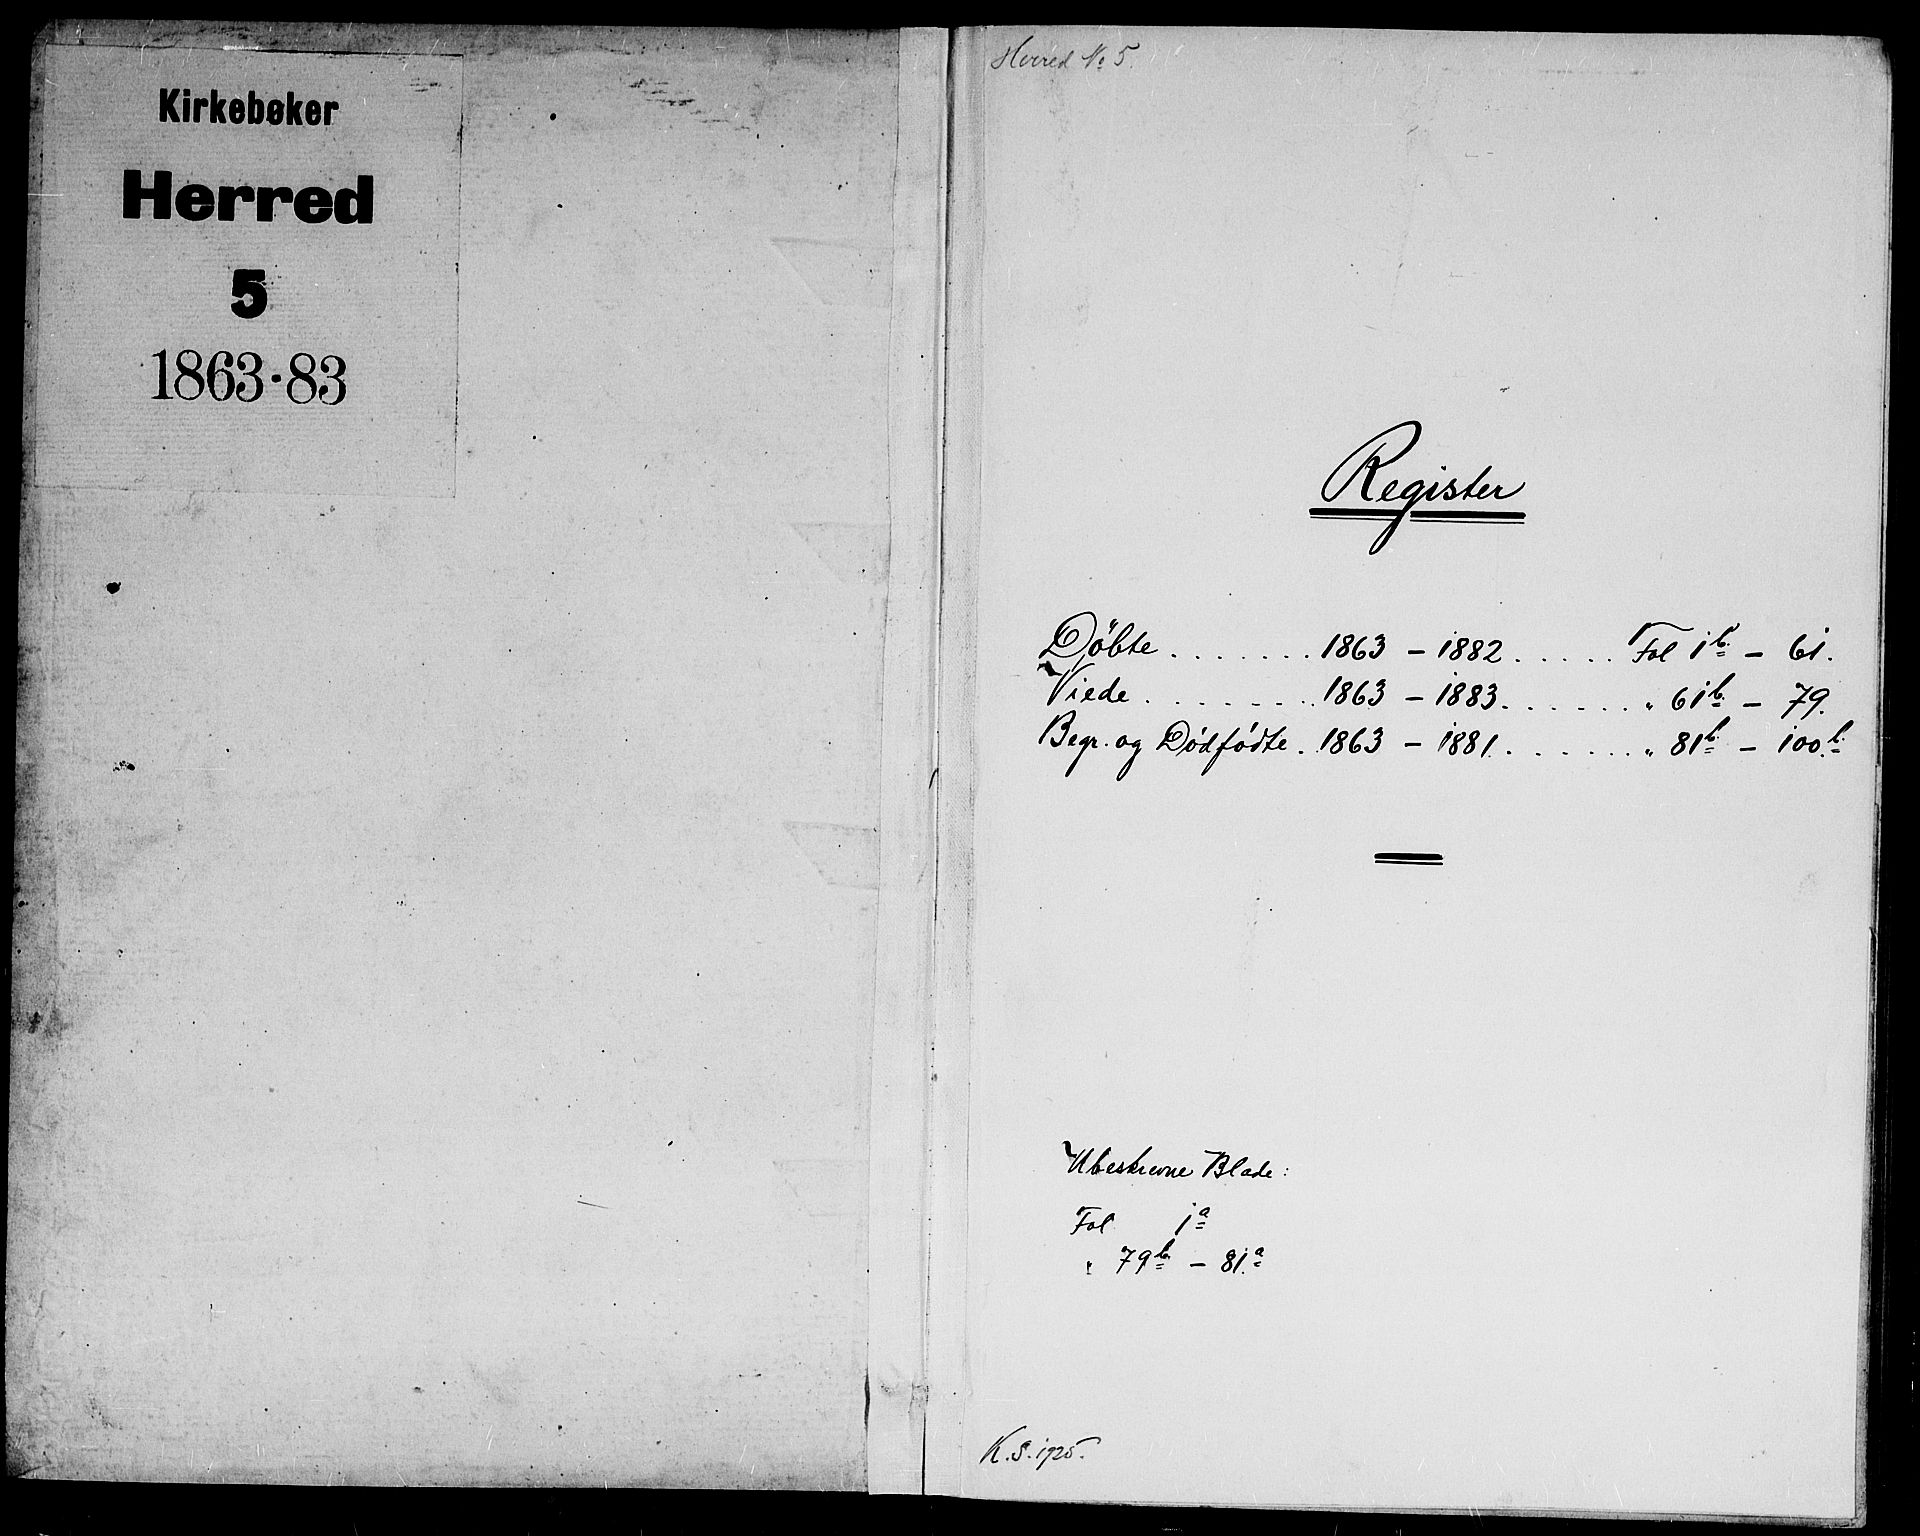 Kirkebøker
Herred
5
1863·83
Herred No 5.
Register
Döbte . . . . . . . 1863 – 1882 . . . . . Fol 1b. – 61.
Viede . . . . . . . . 1863 – 1883. . . . . . . " 61b. – 79.
Begr. og Dødfødte . . 1863 – 1881. . . . . . . " 81b. – 100.b.
Ubeskrevne Blade:
Fol 1a
" 79b. – 81.a
K.S. 1925.